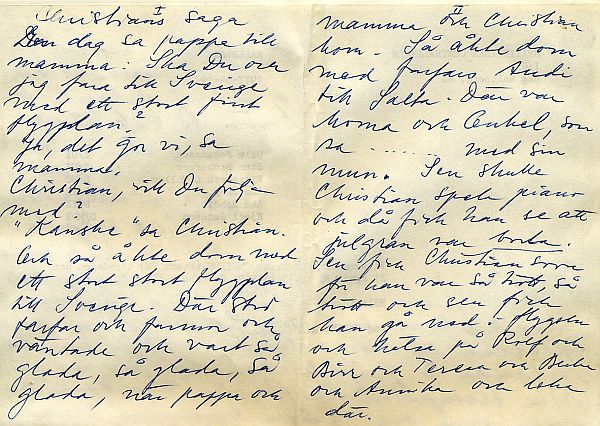 I
Christians saga
Den dag sa pappa till
mamma: Ska Du och
jag fara till Sverige
med ett stort fint
flygplan?
Ja, det gör vi, sa
mamma,
Christian, vill Du följa
med?
"Kanske" sa Christian.
Och så åkte dom med
ett stort stort flygplan
till Sverige. Där stod
farfar och farmor och
väntade och vart så
glada, så glada, så
glada, när pappa och
II
mamma och Christian
kom. Så åkte dom
med farfars Audi
till Salta. Där var
Moma och Onkel, som
sa ...... med sin
mun. Sen skulle
Christian spela piano
och då fick han se att
julgran var borta.
Sen fick Christian sova
för han var så trött, så
trött och sen fick
han gå ned i flygeln
och hälsa på Rolf och
Birr och Teresa och
och Annika och leka
där.